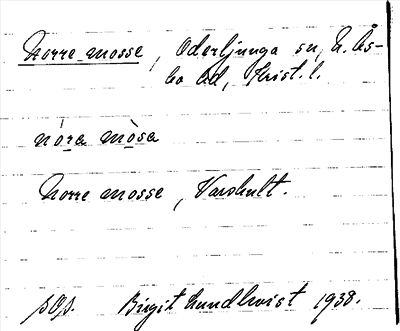 Norre mosse, Oderljunga sn, N. Ås-
bo hd, Krist. l.
nòra mòsa
Norre mosse, Varshult.
sOs. Birgit Lundkvist 1938.